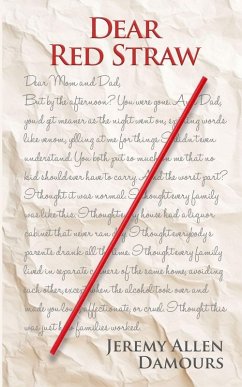 DEAR
RED STRAW
Dear Mom and Dad,
But by the afternoon? You were gone. And Dad,
you'd get meaner as the night went on, words
like venom, yelling at me for things I didn't even
understand. You both put so much on me that no
kid should ever have to carry. And the worst part?
I thought it was normal. I thought every family
was like this. I thought house had a liquor
cabinet that never ran I thought everybody's
parents drank all the time. I thought every family
lived in separate corners of the same home, avoiding
each other, except when the alcohol took over and
made you loud, affectionate, or cruel. I thought this
was just how families worked.
JEREMY ALLEN
DAMOURS